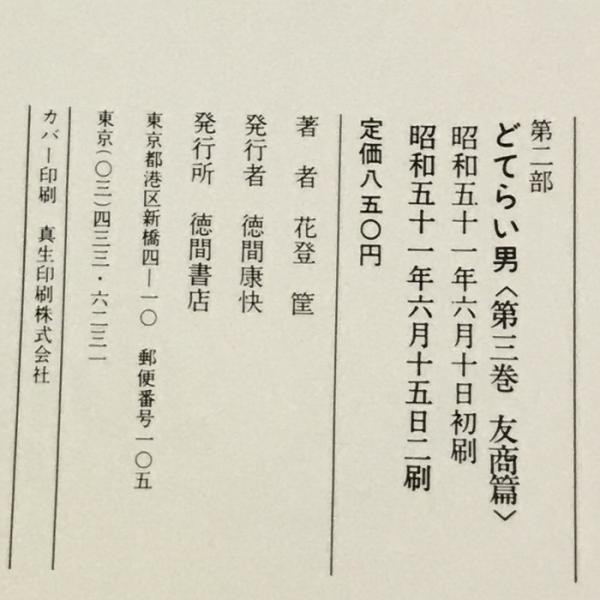 第二部
どてらい男〈第三巻 友商篇〉
昭和五十一年六月十日初刷
昭和五十一年六月十五日二刷
定価八五〇円
著者 花登筐
発行者 徳間康快
発行所 徳間書店
東京都港区新橋四―一〇 郵便番号一〇五
東京(〇三)四三三・六二三一
カバー印刷 真生印刷株式会社